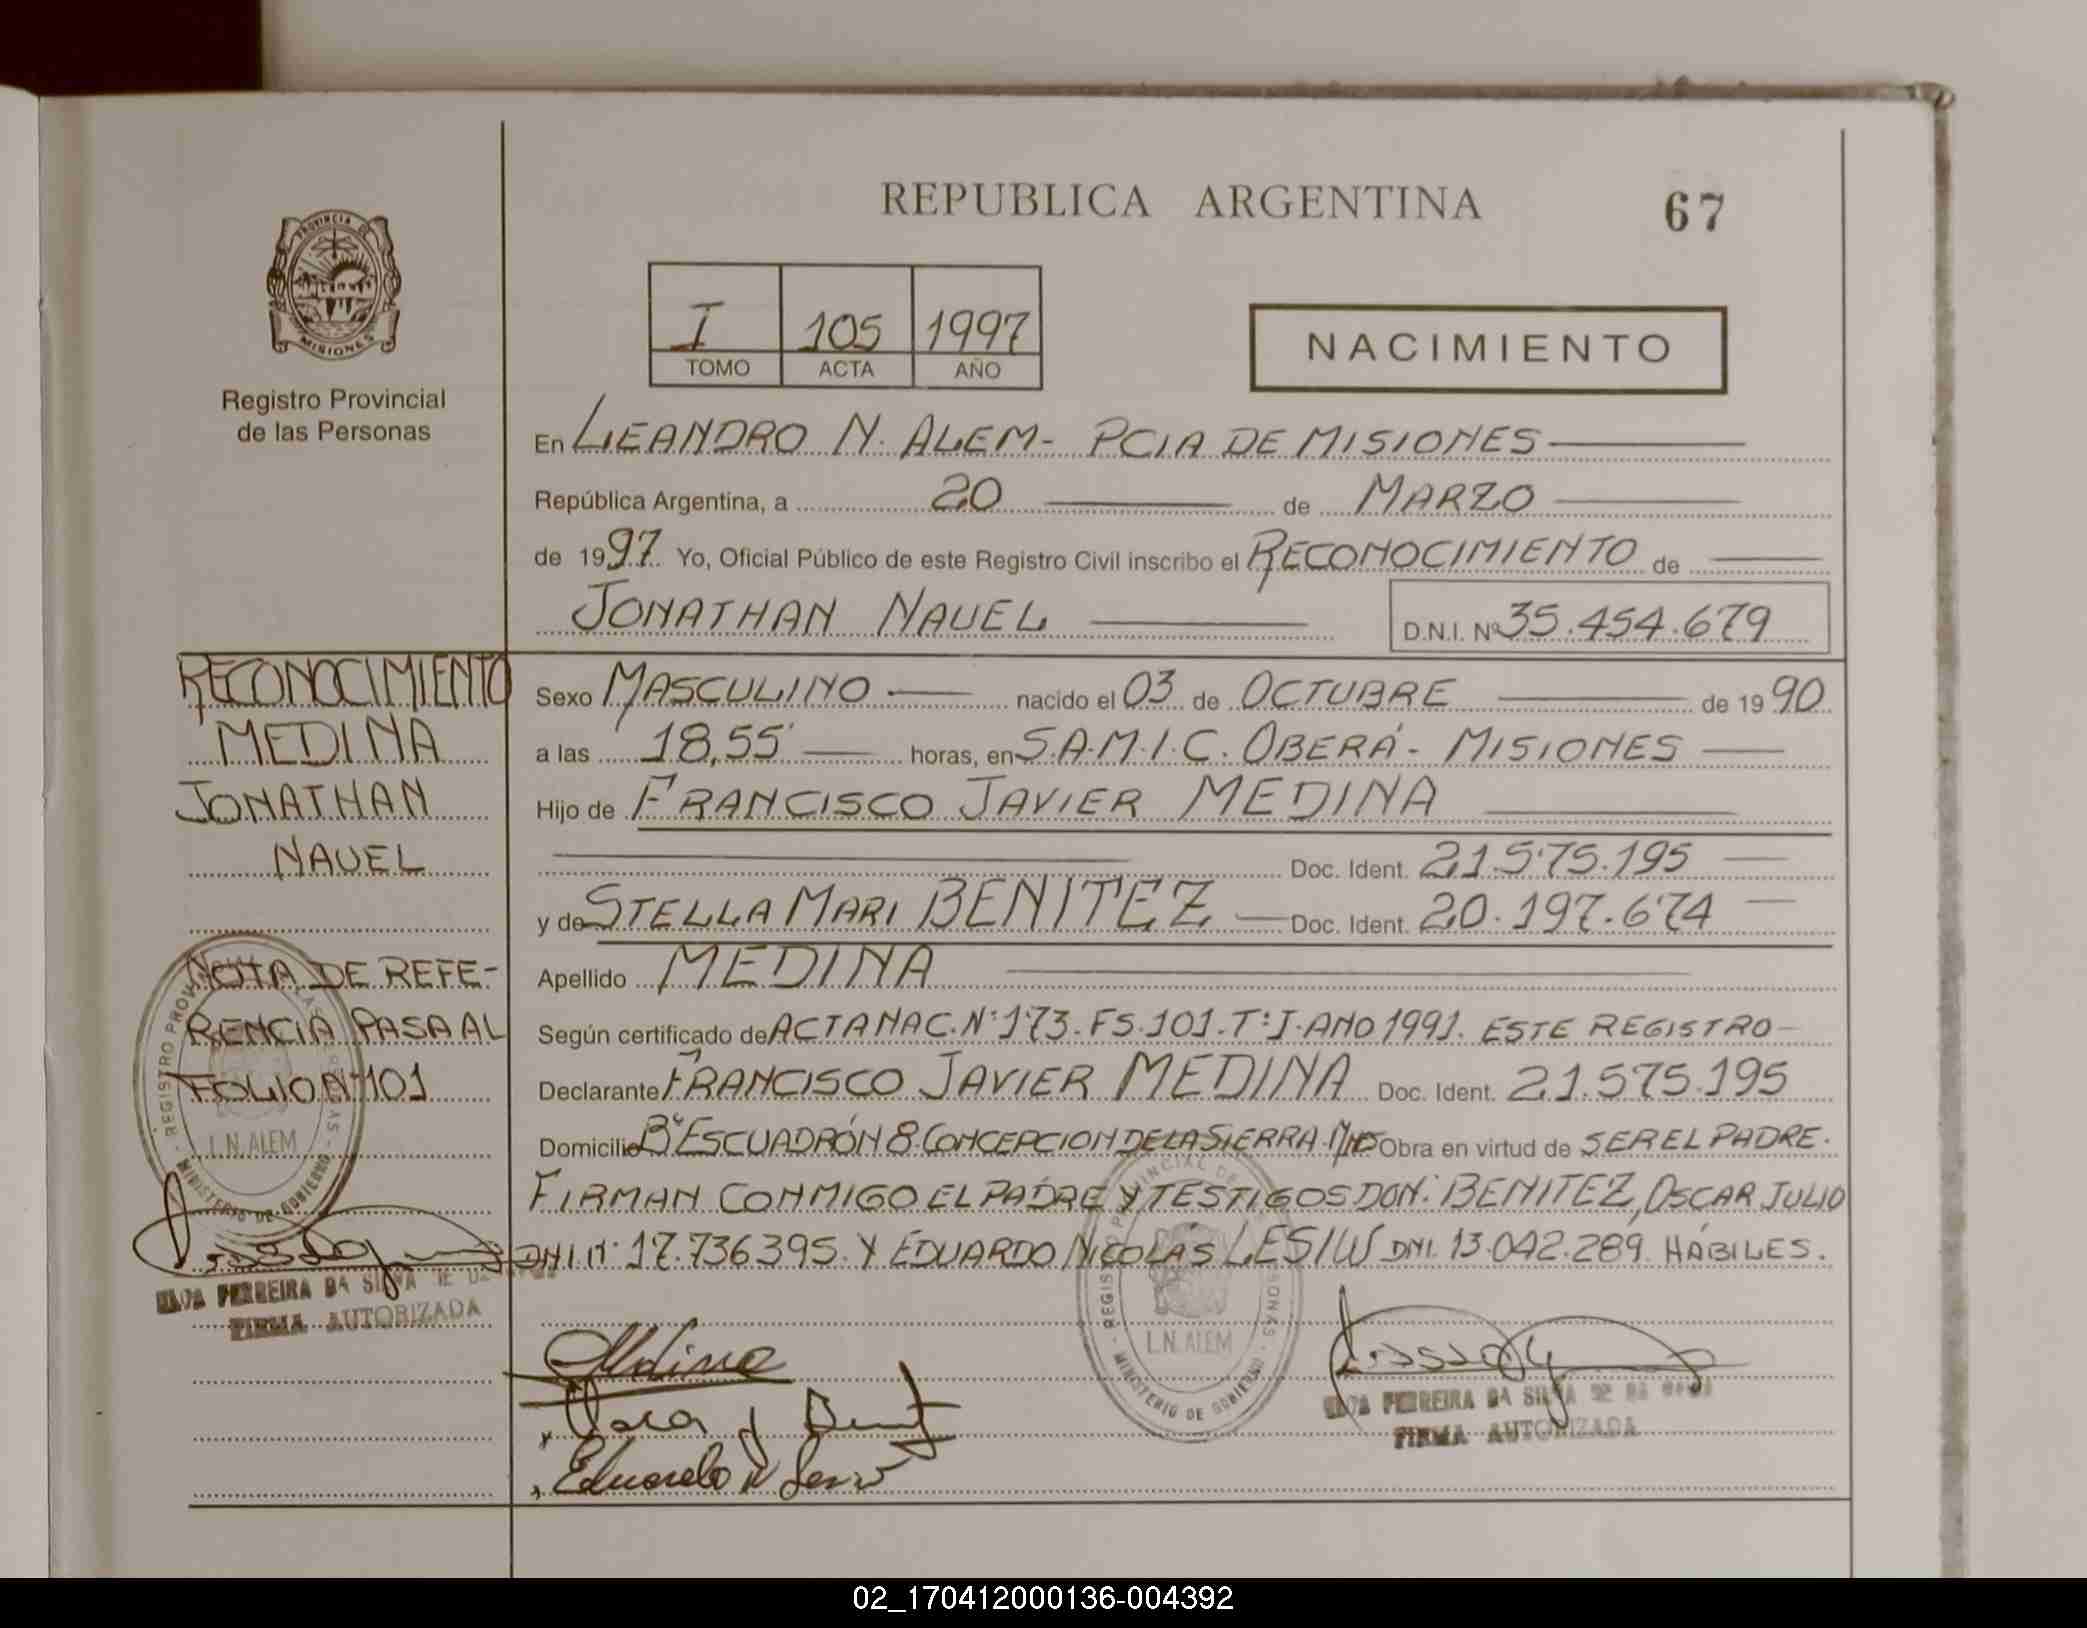 REPUBLICA ARGENTINA
67
PROVINCIA DE
MISIONES
Registro Provincial
de las Personas
I 105 1997
TOMO ACTA AÑO
NACIMIENTO
En LEANDRO N. ALEM - PCIA DE MISIONES
República Argentina, a 20 de MARZO
de 1997. Yo, Oficial Público de este Registro Civil inscribo el RECONOCIMIENTO de
JONATHAN NAUEL
D.N.I. Nº 35.454.679
RECONOCIMIENTO
MEDINA
JONATHAN
NAUEL
NOTA DE REFE-
RENCIA PASA AL
FOLIO Nº 101
Sexo MASCULINO nacido el 03 de OCTUBRE de 1990
a las 18,55 horas, en S.A.M.I.C. OBERÁ - MISIONES
Hijo de FRANCISCO JAVIER MEDINA
Doc. Ident. 21.575.195
y de STELLA MARI BENITEZ Doc. Ident. 20.197.674
Apellido MEDINA
Según certificado de ACTA NAC. Nº 173. FS. 101. Tº I. AÑO 1991. ESTE REGISTRO
Declarante FRANCISCO JAVIER MEDINA Doc. Ident. 21.575.195
Domicilio Bº ESCUADRÓN 8. CONCEPCION DE LA SIERRA. Mnes Obra en virtud de SER EL PADRE.
FIRMAN CONMIGO EL PADRE Y TESTIGOS DON: BENITEZ, OSCAR JULIO
DNI Nº 17.736395. Y EDUARDO NICOLAS LESIW DNI. 13.042.289. HÁBILES.
L.N. ALEM
MINISTERIO DE GOBIERNO
FERREIRA DA SILVA DE
FIRMA AUTORIZADA
REGISTRO PROVINCIAL DE
L.N. ALEM
MINISTERIO DE GOBIERNO
Medina
Eduardo N
FERREIRA DA SILVA DE
FIRMA AUTORIZADA
02_170412000136-004392